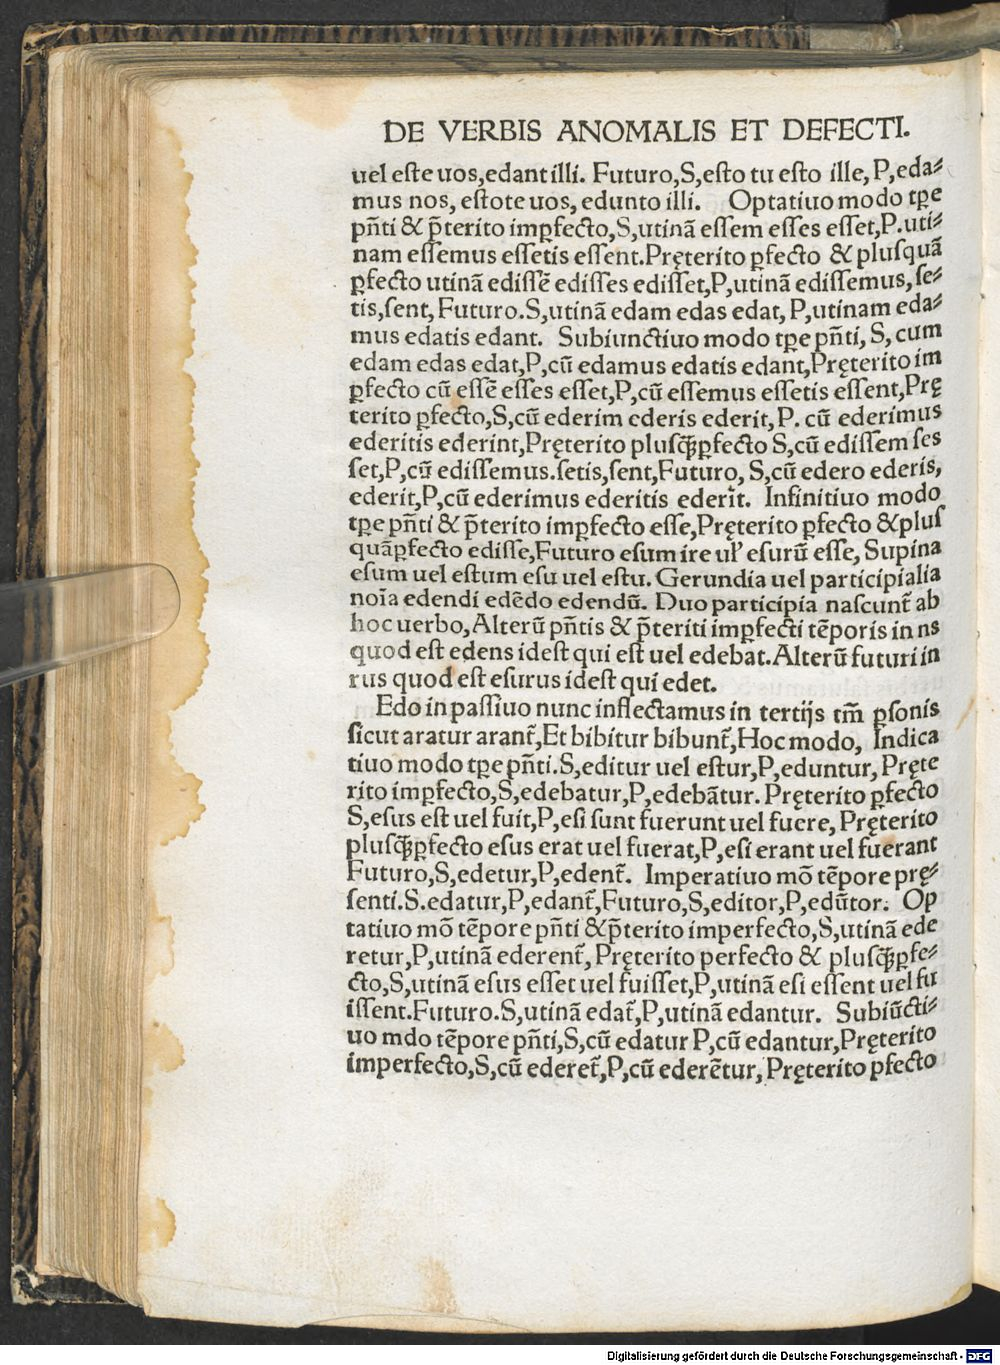 DE VERBIS ANOMALIS ET DEFECTI.
uel este uos,edant illi. Futuro,S,esto tu esto ille, P,eda⸗
mus nos, estote uos, edunto illi. Optatiuo modo tꝑe
pñti & p̃terito imꝑfecto,S,utinã essem esses esset,P.uti⸗
nam essemus essetis essent.Pręterito ꝑfecto & plusquã
ꝑfecto utinã edissẽ edisses edisset,P,utinã edissemus,se⸗
tis,sent, Futuro.S,utinã edam edas edat, P,utinam eda⸗
mus edatis edant. Subiunctiuo modo tꝑe pñti, S, cum
edam edas edat,P,cũ edamus edatis edant,Pręterito im
ꝑfecto cũ essẽ esses esset,P,cũ essemus essetis essent,Prę
terito ꝑfecto,S,cũ ederim ederis ederit, P. cũ ederimus
ederitis ederint,Pręterito plusq̃ꝑfecto S,cũ edissem ses
set,P,cũ edissemus.setis,sent,Futuro, S,cũ edero ederis,
ederit,P,cũ ederimus ederitis ederĩt. Infinitiuo modo
tꝑe pñti & p̃terito imꝑfecto esse,Pręterito ꝑfecto &plus
quãꝑfecto edisse,Futuro esum ire ul' esurũ esse, Supina
esum uel estum esu uel estu. Gerundia uel participialia
noĩa edendi edẽdo edendũ. Duo participia nascunt̃ ab
hoc uerbo,Alterũ pñtis & p̃teriti imꝑfecti tẽporis in ns
quod est edens idest qui est uel edebat.Alterũ futuri in
rus quod est esurus idest qui edet.
Edo in passiuo nunc inflectamus in tertijs tm̃ ꝑsonis
sicut aratur arant̃,Et bibitur bibunt̃,Hoc modo, Indica
tiuo modo tꝑe pñti.S,editur uel estur,P,eduntur, Pręte
rito imꝑfecto,S,edebatur,P,edebãtur. Pręterito ꝑfecto
S,esus est uel fuit,P,esi sunt fuerunt uel fuere, Pręterito
plusq̃ꝑfecto esus erat uel fuerat,P,esi erant uel fuerant
Futuro,S,edetur,P,edent̃. Imperatiuo mõ tẽpore prę⸗
senti.S.edatur,P,edant̃,Futuro,S,editor,P,edũtor. Op
tatiuo mõ tẽpore pñti &p̃terito imperfecto,S,utinã ede
retur,P,utinã ederent̃, Pręterito perfecto & plusq̃ꝑfe⸗
cto,S,utinã esus esset uel fuisset,P,utinã esi essent uel fu
issent.Futuro.S,utinã edat̃,P,utinã edantur. Subiũcti⸗
uo mdo tẽpore pñti,S,cũ edatur P,cũ edantur,Pręterito
imperfecto,S,cũ ederet̃,P,cũ ederẽtur, Pręterito ꝑfecto
Digitalisierung gefördert durch die Deutsche Forschungsgemeinschaft - DFG